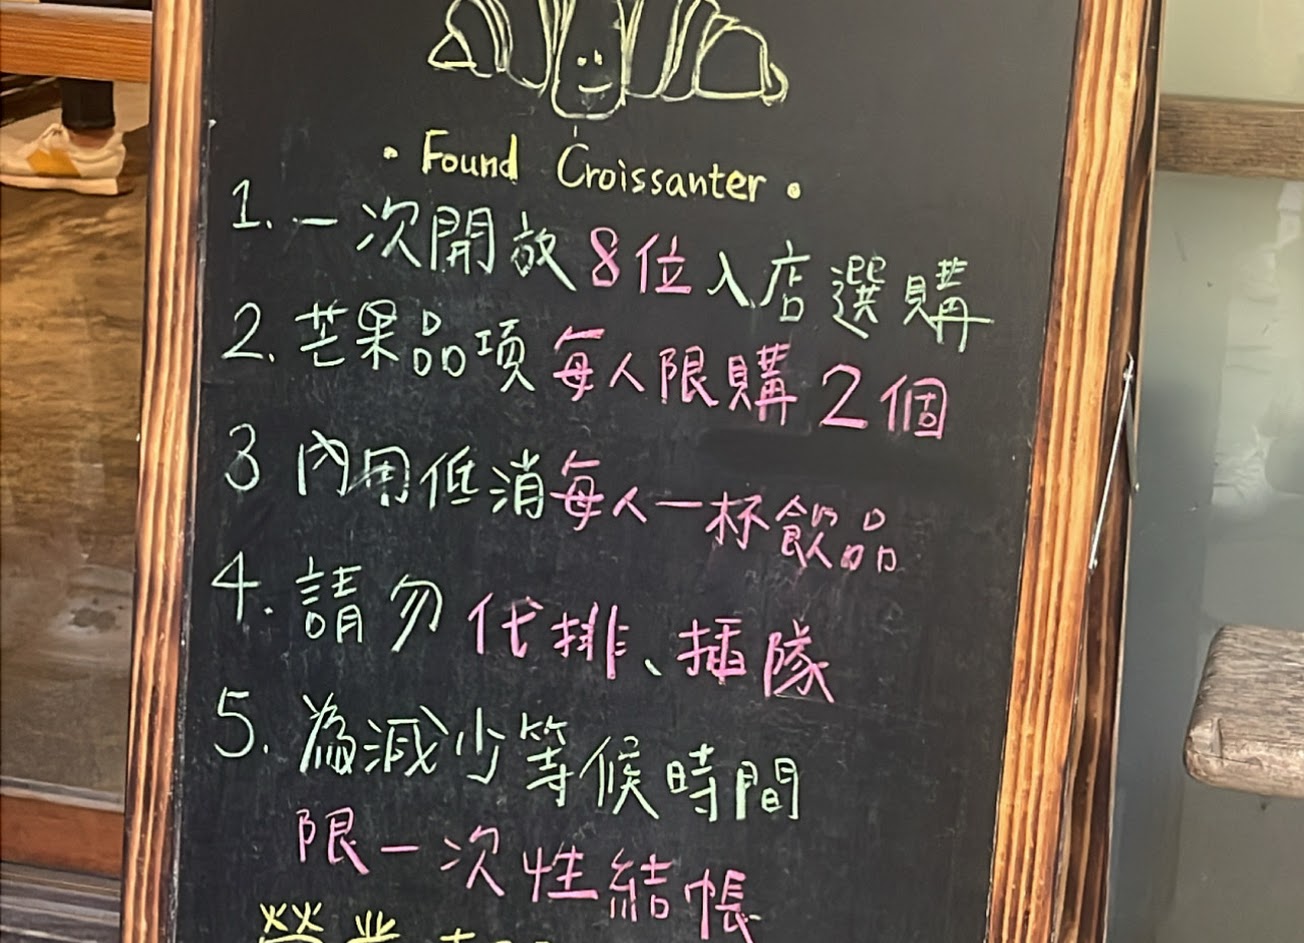 • Found Croissanter •
1. 一次開放8位入店選購
2. 芒果品項每人限購2個
3 內用低消每人一杯飲品
4. 請勿代排、插隊
5. 為減少等候時間
限一次性結帳
營業